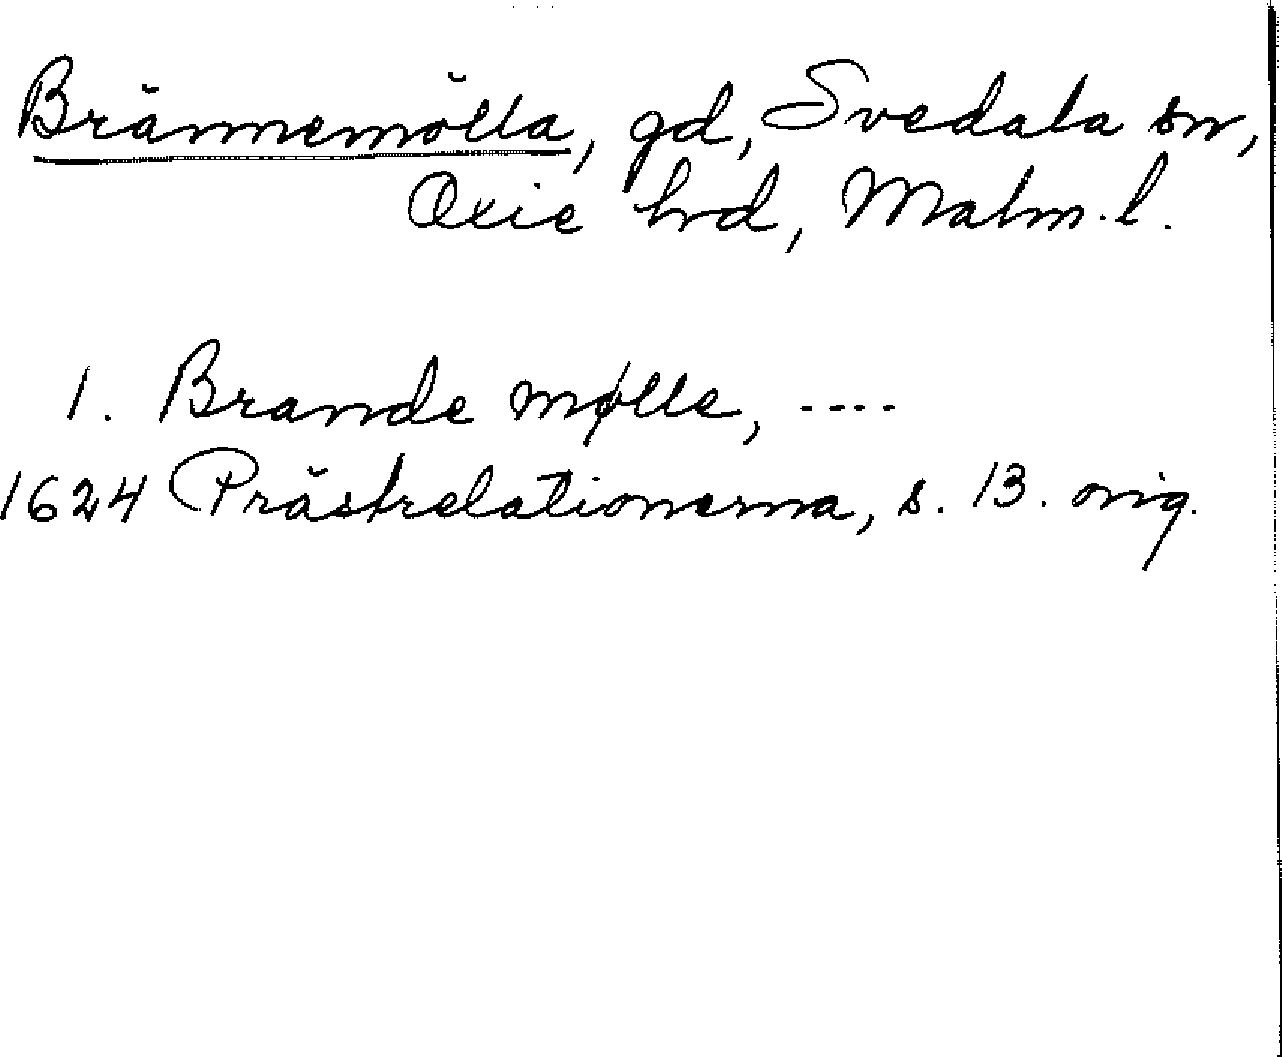 Brännemölla, gd, Svedala sn,
Oxie hrd, Malm. l.
1. Brande mølle, ----
1624 Prästrelationerna, s. 13. orig.